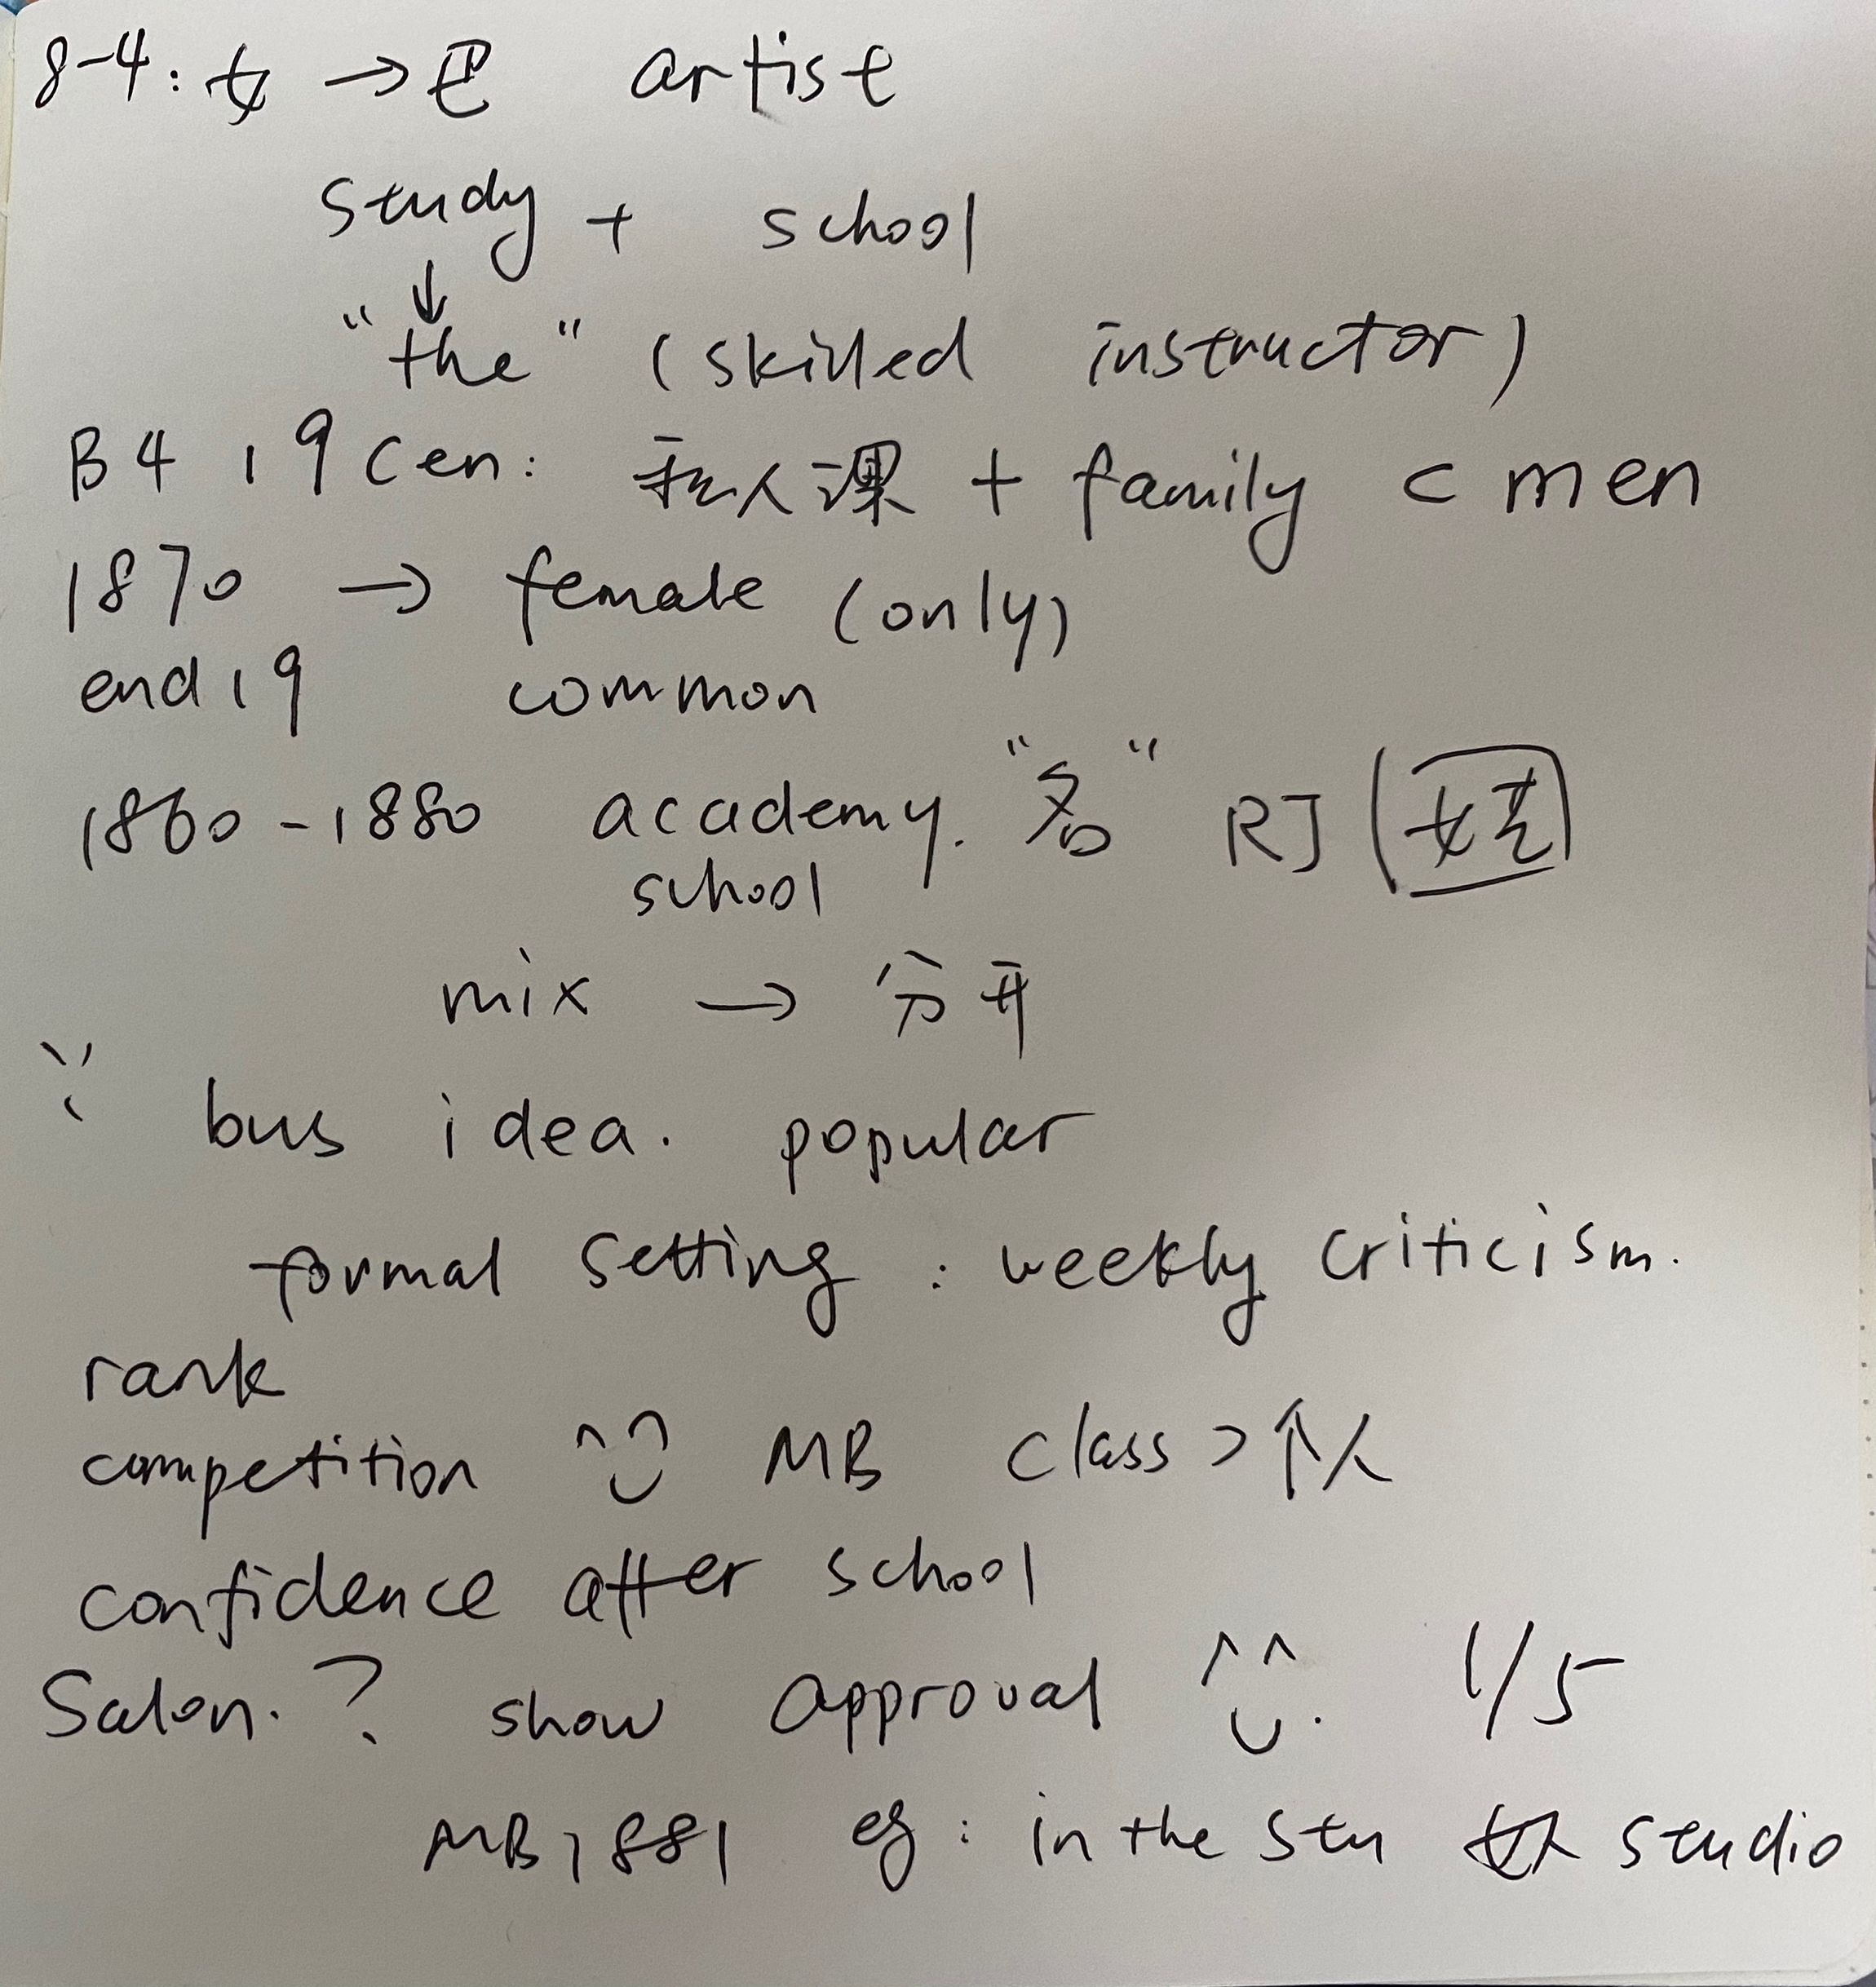 8-4: 女 → 巴 artist
study + school
↓
"the" (skilled instructor)
B4 19 cen: 私人课 + family c men
1870 → female (only)
end 19 common
1860-1880 academy. "名" RJ (女
school
mix → 分开
∵ bus idea. popular
formal setting : weekly criticism.
rank
competition MB class > 个人
confidence after school
Salon. ? show approval 1/5
MB 1881 eg : in the stu 女人 studio